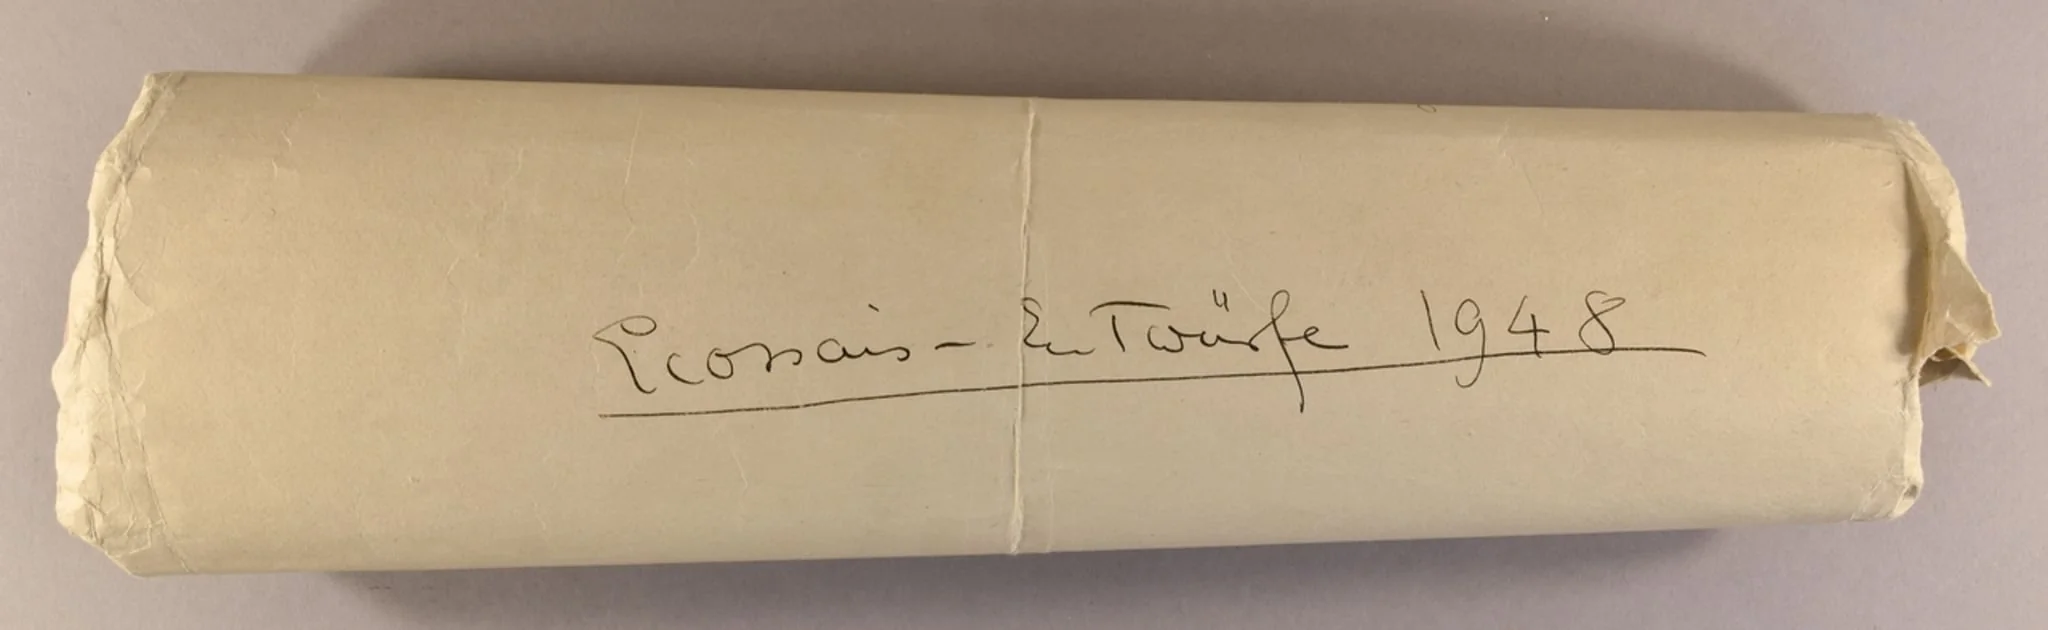 Ecossais - Entwürfe 1948